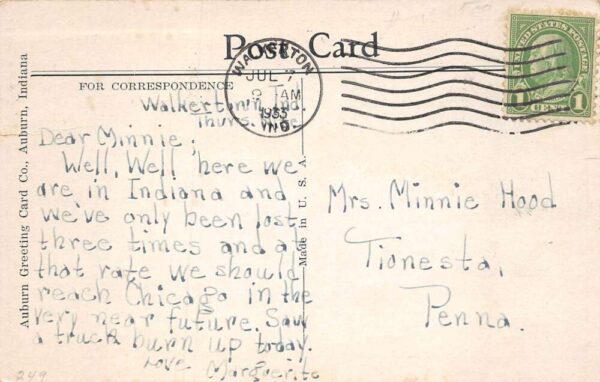 Post Card
WALKERTON
JUL 7
AM
1933
IND.
UNITED STATES POSTAGE
1 CENT 1
FOR CORRESPONDENCE
Auburn Greeting Card Co., Auburn, Indiana
Made in U. S. A.
Walkerton, Ind.
Thurs.
Dear Minnie;
Well, Well here we
are in Indiana and
we've only been lost
three times and at
that rate we should
reach Chicago in the
very near future. Saw
a truck burn up today.
Love Marguerite
Mrs. Minnie Hood
Tionesta,
Penna.
249